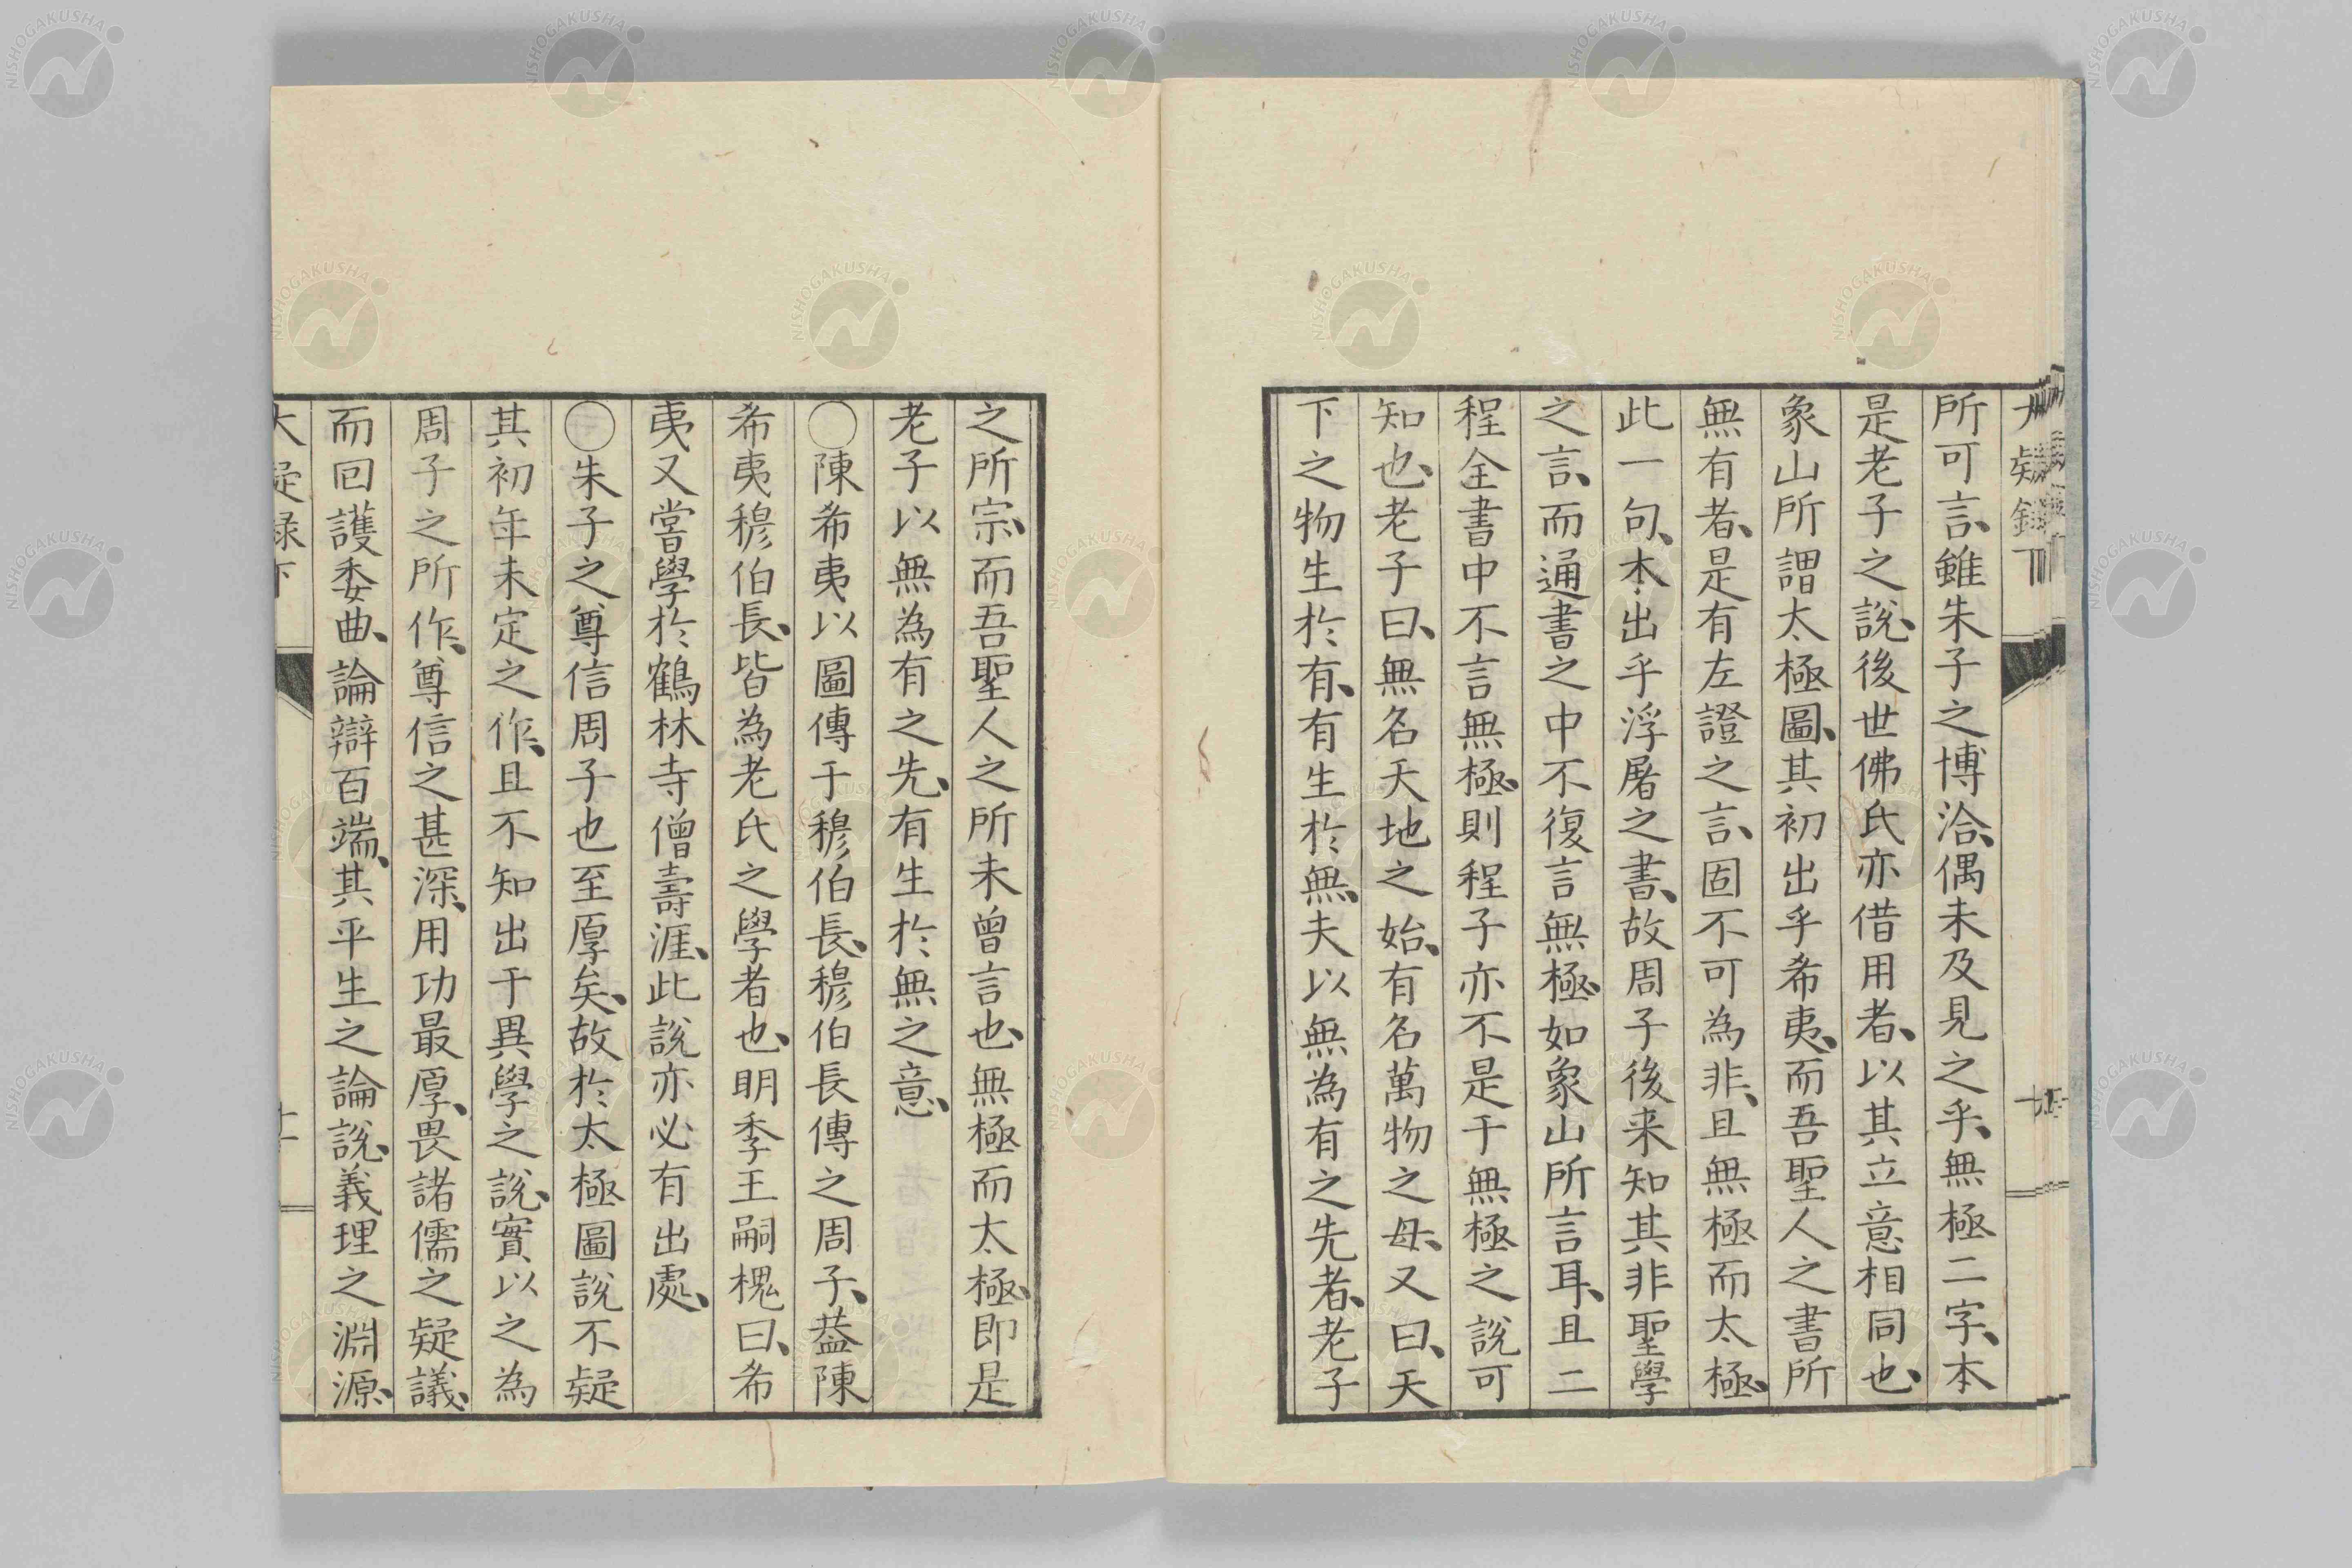 所可言、雖朱子之博洽、偶未及見之乎、無極二字、本
是老子之說、後世佛氏亦借用者、以其立意相同也、
象山所謂太極圖、其初出乎希夷、而吾聖人之書所
無有者、是有左證之言、固不可為非、且無極而太極、
此一句、本出乎浮屠之書、故周子後来知其非聖學
之言、而通書之中不復言無極、如象山所言耳、且二
程全書中不言無極、則程子亦不是于無極之說可
知也、老子曰、無名天地之始、有名萬物之母、又曰、天
下之物生於有、有生於無、夫以無為有之先者、老子
之所宗、而吾聖人之所未曾言也、無極而太極、即是
老子以無為有之先、有生於無之意、
○陳希夷以圖傳于穆伯長、穆伯長傳之周子、蓋陳
希夷穆伯長、皆為老氏之學者也、明季王嗣槐曰、希
夷又嘗學於鶴林寺僧壽涯、此說亦必有出處、
○朱子之尊信周子也至厚矣、故於太極圖說不疑
其初年未定之作、且不知出于異學之說、實以之為
周子之所作、尊信之甚深、用功最厚、畏諸儒之疑議、
而回護委曲、論辯百端、其平生之論說、義理之淵源、
大疑録下
NISHOGAKUSHA